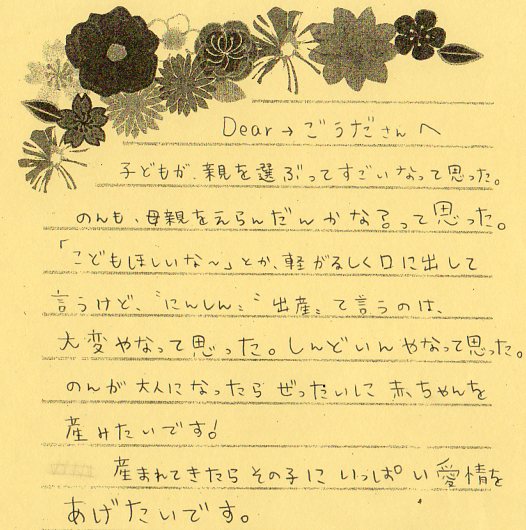 Dear→ごうださんへ
子どもが、親を選ぶってすごいなって思った。
のんも、母親をえらんだんかなぁって思った。
「こどもほしいな〜」とか、軽がるしく口に出して
言うけど、〝にんしん〟〝出産〟て言うのは、
大変やなって思った。しんどいんやなって思った。
のんが大人になったらぜったいに赤ちゃんを
産みたいです!
産まれてきたらその子にいっぱい愛情を
あげたいです。